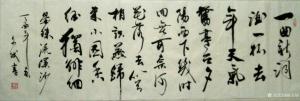 一曲新詞
酒一杯去
年天氣
舊亭台夕
陽西下幾時
回無可奈何
花落去似曾
相識燕歸
來小園香
徑獨徘徊
晏殊浣溪沙